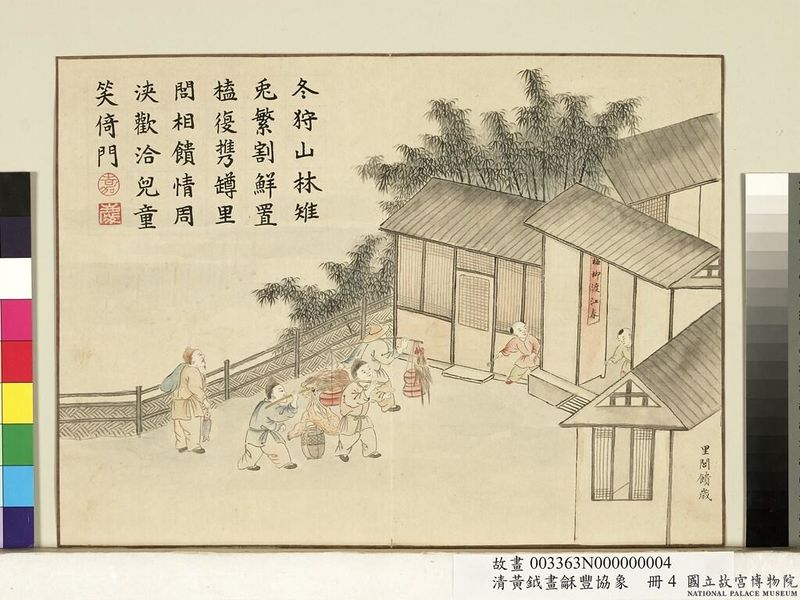 冬狩山林雉
兎繁割鮮置
榼復携罇里
閭相饋情周
浹歡洽兒童
笑倚門
嘉
慶
梅柳渡江春
里閭饋歲
故畫 003363N000000004
清黃鉞畫龢豐協象 冊 4
國立故宮博物院
NATIONAL PALACE MUSEUM